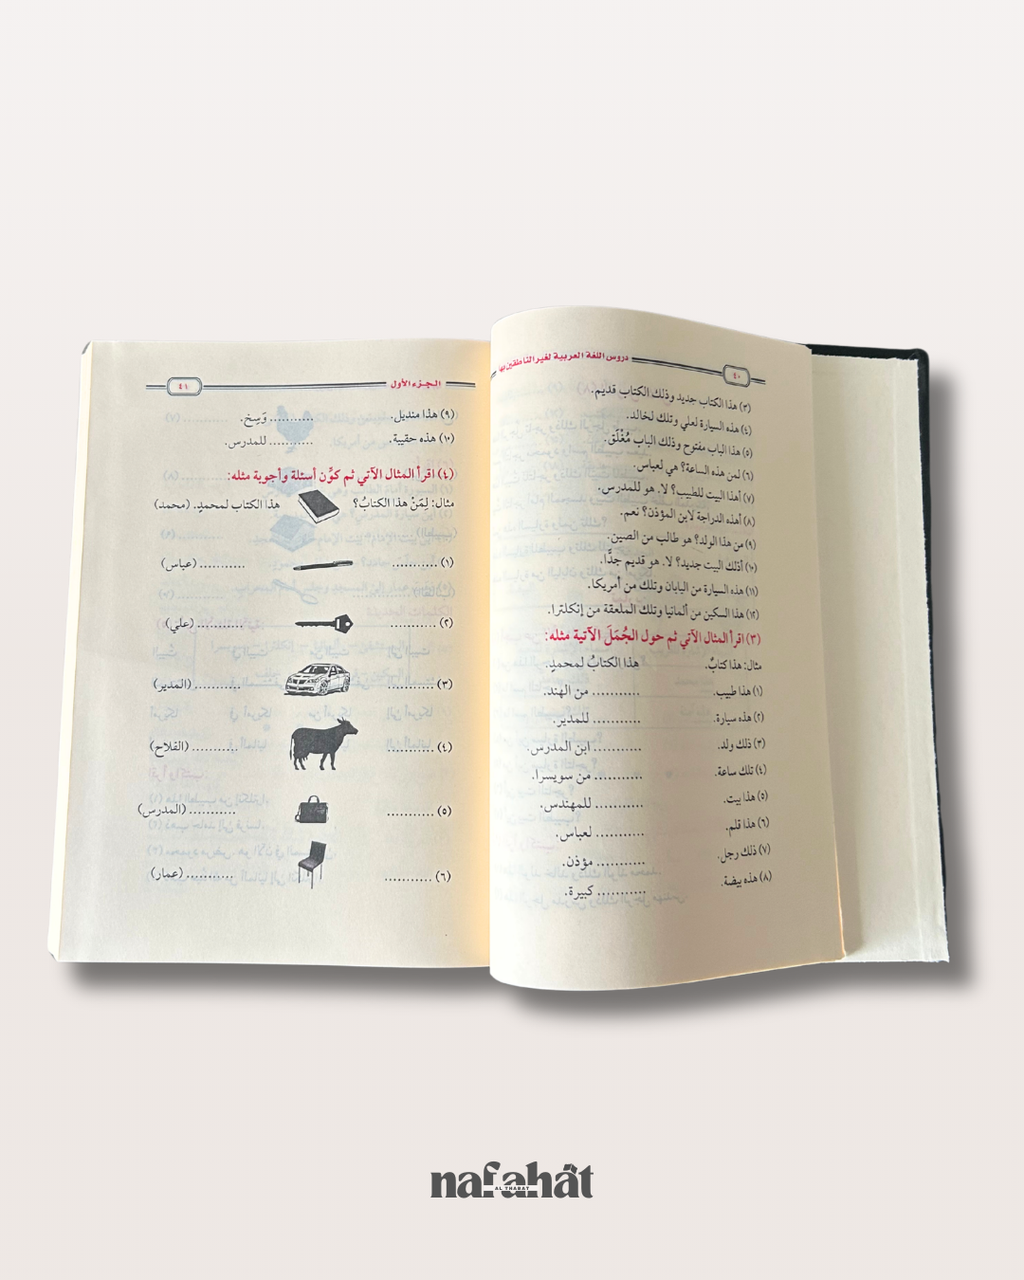 دروس اللغة العربية لغير الناطقين بها
٤٠
(٣) هذا الكتاب جديد وذلك الكتاب قديم.
(٤) هذه السيارة لعلي وتلك لخالد.
(٥) هذا الباب مفتوح وذلك الباب مُغْلَق.
(٦) لمن هذه الساعة؟ هي لعباس.
(٧) أهذا البيت للطبيب؟ لا. هو للمدرس.
(٨) أهذه الدراجة لابن المؤذن؟ نعم.
(٩) من هذا الولد؟ هو طالب من الصين.
(١٠) أذلك البيت جديد؟ لا. هو قديم جدًّا.
(١١) هذه السيارة من اليابان وتلك من أمريكا.
(١٢) هذا السكين من ألمانيا وتلك الملعقة من إنكلترا.
(٣) اقرأ المثال الآتي ثم حول الجُمَلَ الآتية مثله:
مثال: هذا كتابٌ. هذا الكتابُ لمحمدٍ.
(١) هذا طبيب. ........... من الهند.
(٢) هذه سيارة. ........... للمدير.
(٣) ذلك ولد. ........... ابن المدرس.
(٤) تلك ساعة. ........... من سويسرا.
(٥) هذا بيت. ........... للمهندس.
(٦) هذا قلم. ........... لعباس.
(٧) ذلك رجل. ........... مؤذن.
(٨) هذه بيضة. ........... كبيرة.
الجزء الأول
٤١
(٩) هذا منديل. ........... وَسِخ.
(١٠) هذه حقيبة. ........... للمدرس.
(٤) اقرأ المثال الآتي ثم كوِّن أسئلة وأجوبة مثله:
مثال: لِمَنْ هذا الكتابُ؟ هذا الكتاب لمحمدٍ. (محمد)
(١) ........... ........... (عباس)
(٢) ........... ........... (علي)
(٣) ........... ........... (المدير)
(٤) ........... ........... (الفلاح)
(٥) ........... ........... (المدرس)
(٦) ........... ........... (عمار)
nafahát
AL THABAT